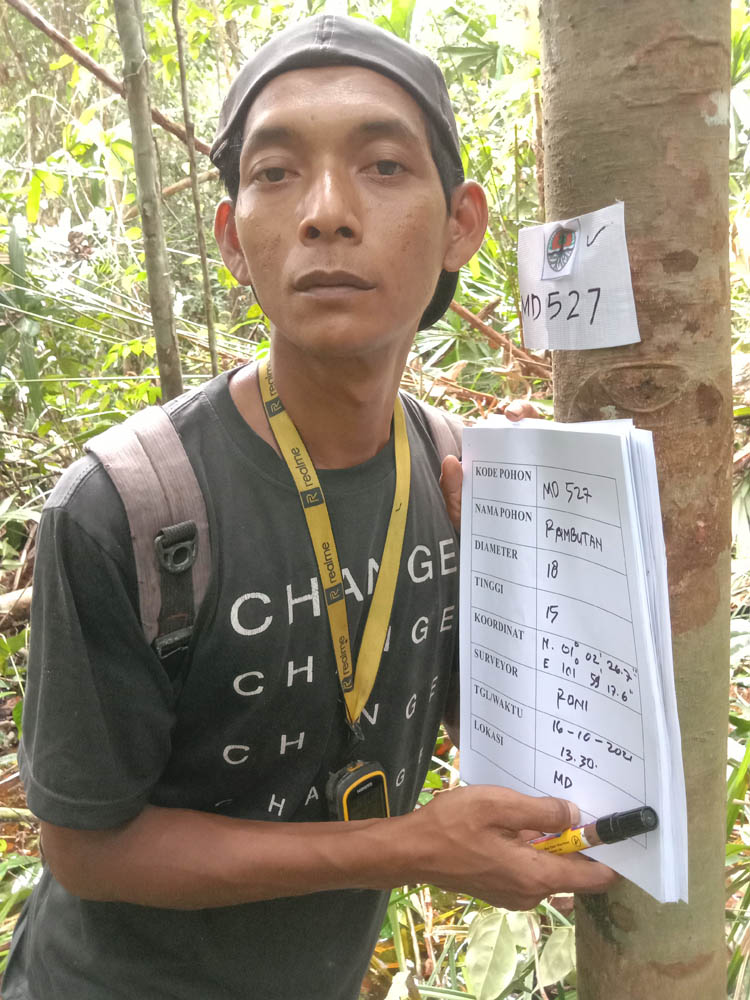 MD 527
KODE POHON MD 527
NAMA POHON RAMBUTAN
DIAMETER 18
TINGGI 15
KOORDINAT N. 01° 02' 26.7"
E 101° 59' 17.6"
SURVEYOR RONI
TGL/WAKTU 16-10-2021
13.30.
LOKASI MD
realme
realme
realme
CHANGE
CHANGE
CHANGE
CHANGE